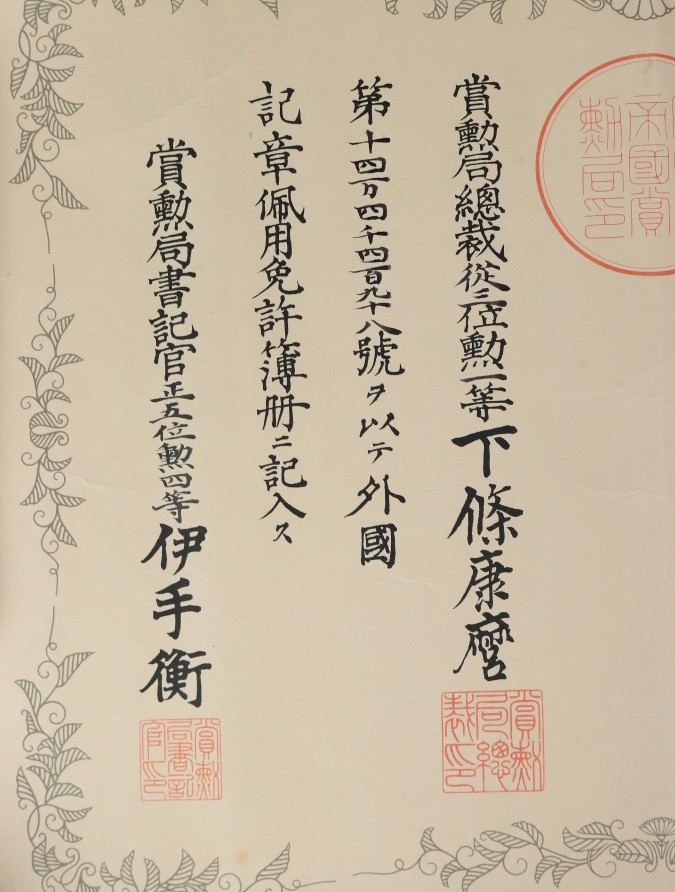 賞勲局總裁從三位勲一等下條康麿
第十四万四千四百九十八號ヲ以テ外國
記章佩用免許簿册ニ記入ス
賞勲局書記官正五位勲四等伊手衡
賞勲局總裁印
賞勲局書記官印